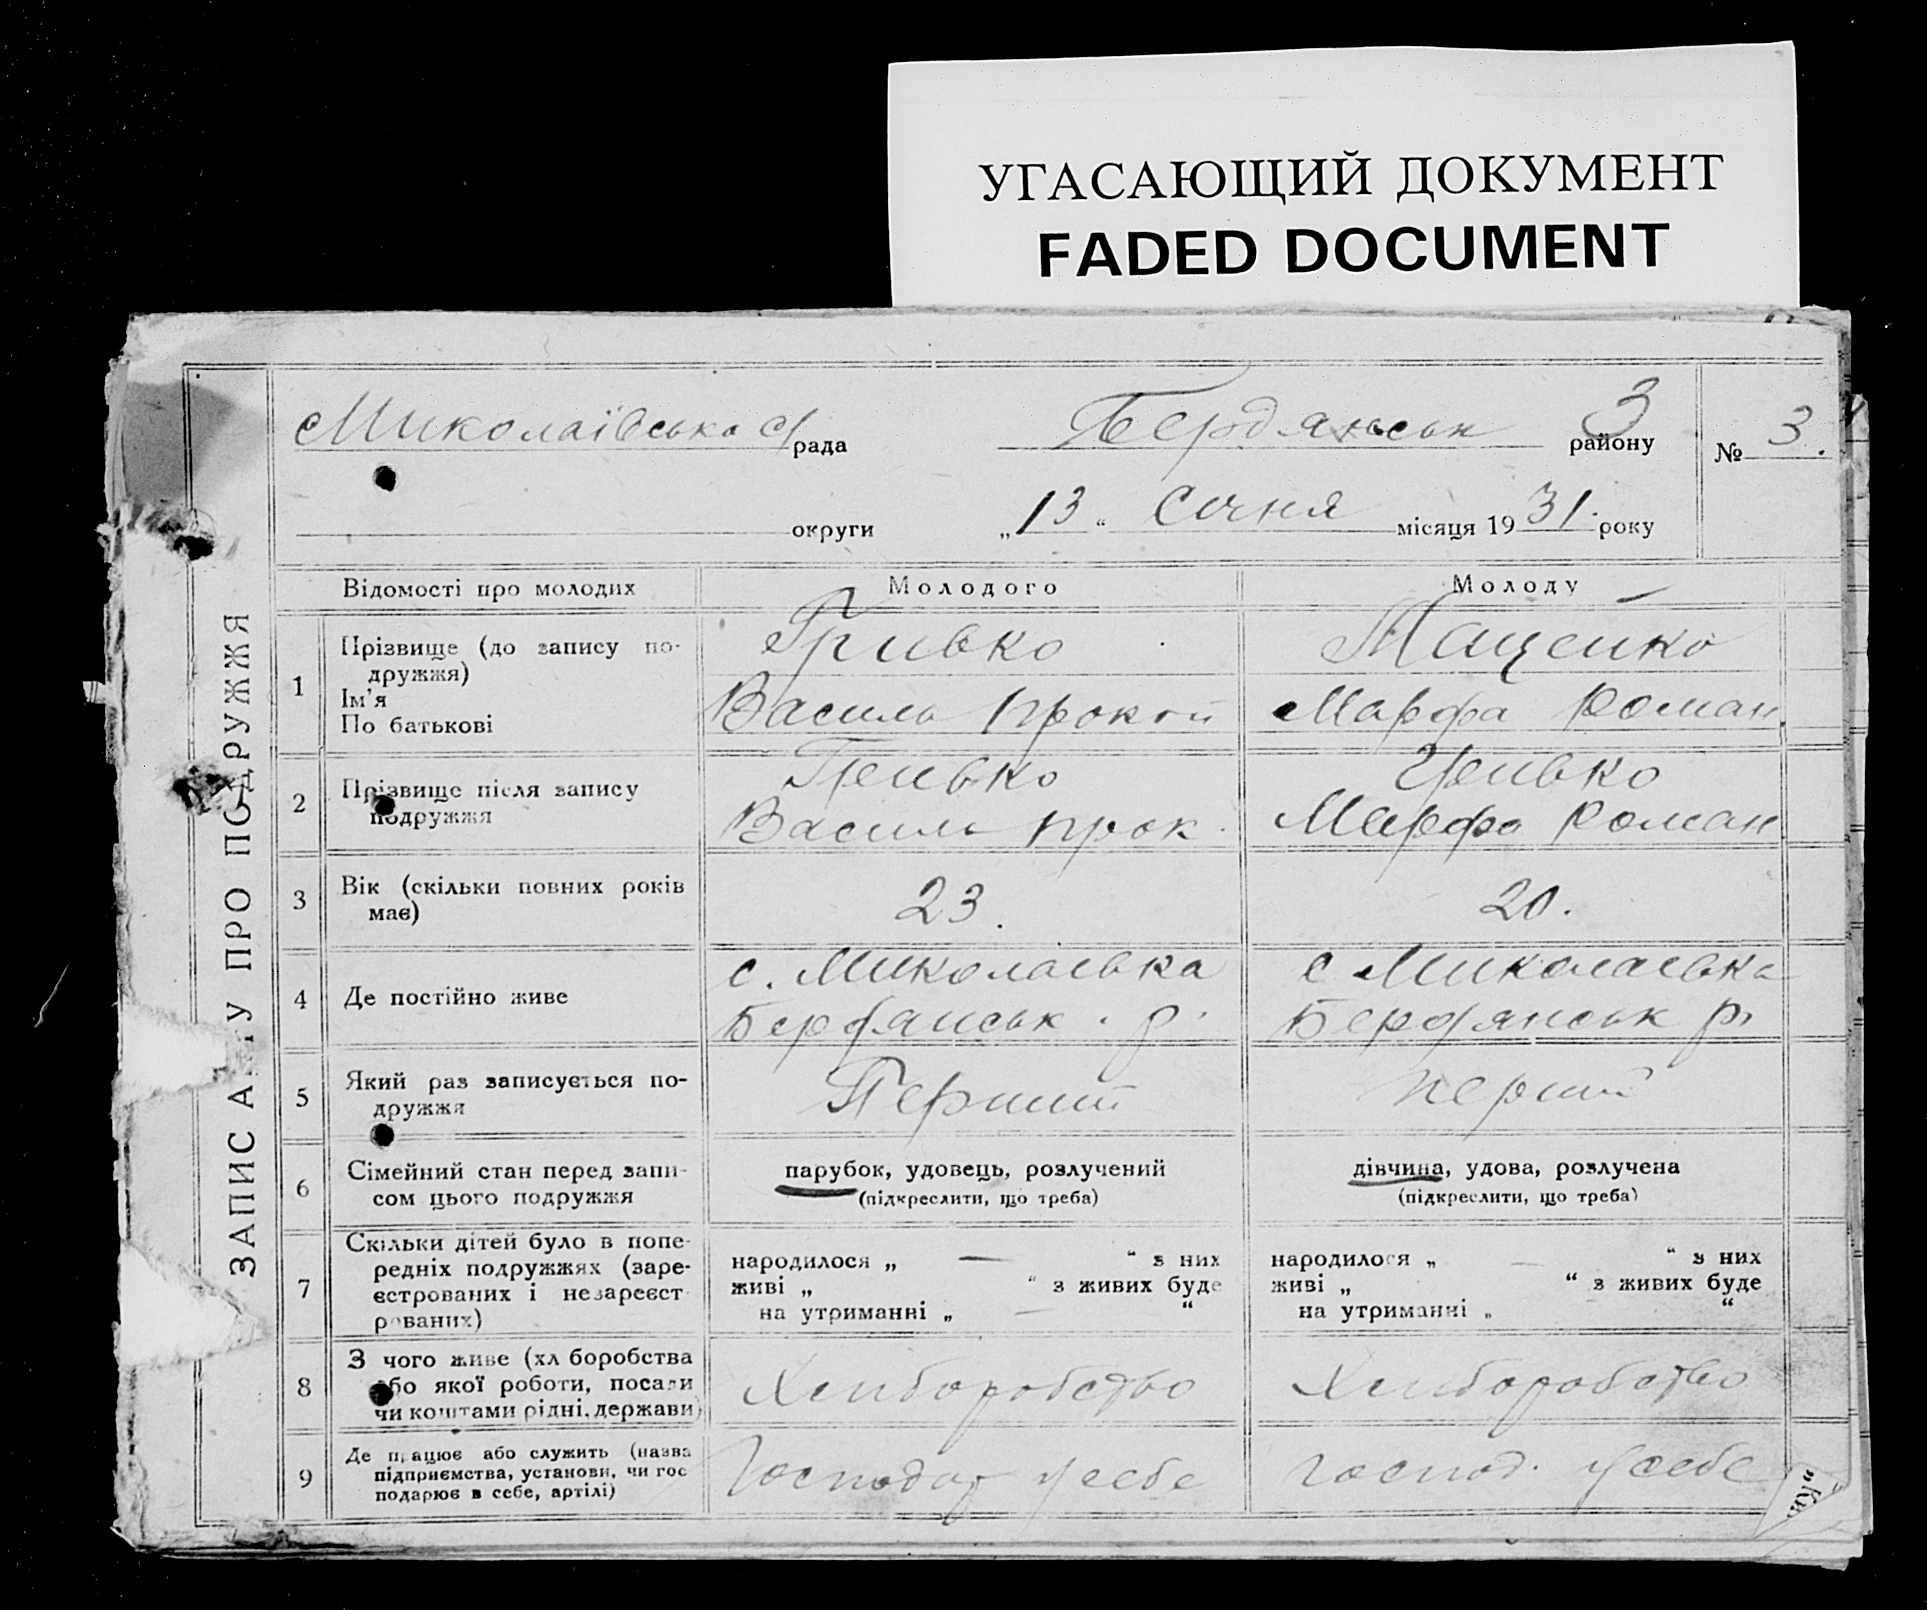 УГАСАЮЩИЙ ДОКУМЕНТ
FADED DOCUMENT
ЗАПИС А ТУ ПРО ПОДРУЖЖЯ
Миколаївська с/рада Бердянськ району 3
№ 3.
округи „13“ Січня місяця 1931. року
Відомості про молодих
Молодого
Молоду
1
Прізвище (до запису по-
дружжя)
Ім'я
По батькові
Гривко
Василь Прокоп
Маценко
Марфа Роман.
2
Прізвище після запису
подружжя
Гривко
Василь Прок.
Гривко
Марфа Роман
3
Вік (скільки повних років
має)
23.
20.
4
Де постійно живе
с. Миколаївка
Бердянськ. р.
с Миколаївка
Бердянськ р.
5
Який раз записується по-
дружжя
Перший
перший
6
Сімейний стан перед запи-
сом цього подружжя
парубок, удовець, розлучений
(підкреслити, що треба)
дівчина, удова, розлучена
(підкреслити, що треба)
7
Скільки дітей було в попе-
редніх подружжях (заре-
єстрованих і незареєст-
рованих)
народилося „ — “ з них
живі „ “ з живих буде
на утриманні „ — “
народилося „ — “ з них
живі „ “ з живих буде
на утриманні „ “
8
З чого живе (хл боробства
або якої роботи, посади
чи коштами рідні, держави)
Хлиборобство
Хлиборобство
9
Де працює або служить (назва
підприємства, установи, чи гос
подарює в себе, артілі)
Господар у себе
Господ. у себе
„Ки